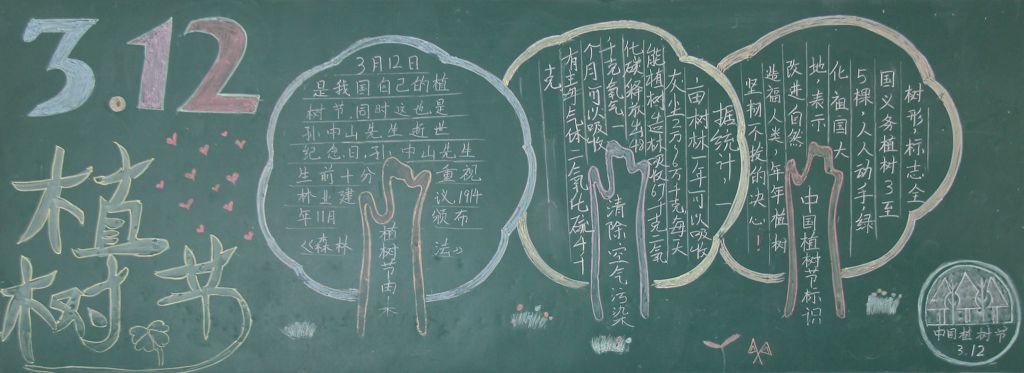 3.12
植树节
3月12日
是我国自己的植
树节,同时这也是
孙中山先生逝世
纪念日,孙中山先生
生前十分 重视
林业建 议,1914
年11月 颁布
《森林 法》
植树节由来
据统计,一
亩树林一年可以吸收
灰尘2万~6万千克每天
能植树造林吸收67千克二氧
化碳,释放出48
千克氧气,一
个月可以吸收
有毒气体二氧化硫4千
克
清除空气污染
树形,标志全
国义务植树3至
5棵,人人动手绿
化祖国大
地,表示
改进自然
造福人类,年年植树
坚韧不拔的决心!
中国植树节标识
中国植树节
3.12